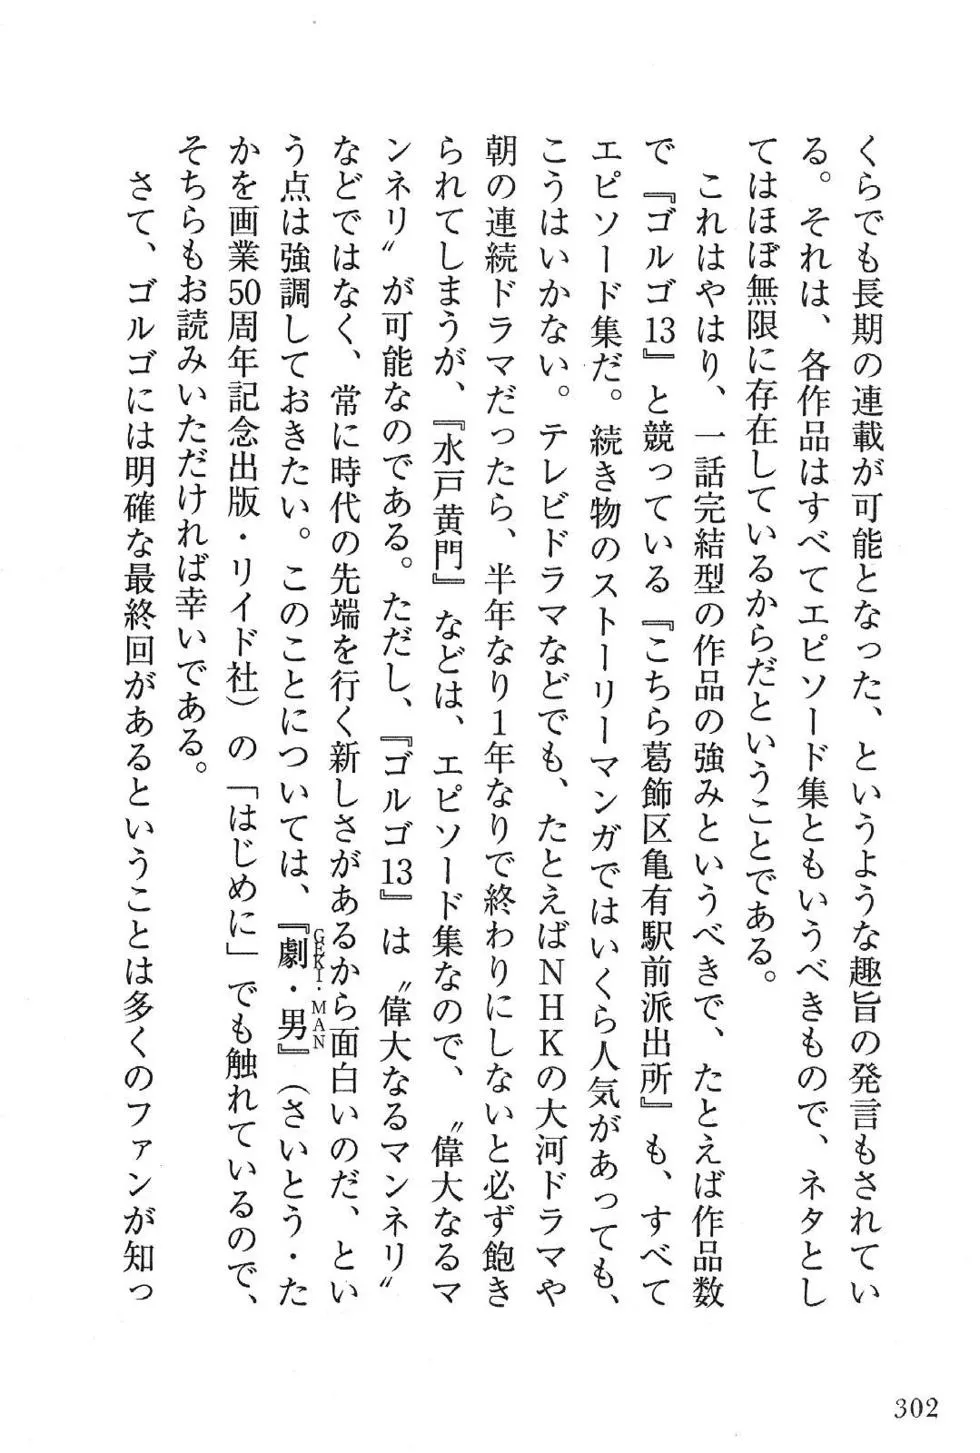 くらでも長期の連載が可能となった、というような趣旨の発言もされてい
る。それは、各作品はすべてエピソード集ともいうべきもので、ネタとし
てはほぼ無限に存在しているからだということである。
これはやはり、一話完結型の作品の強みというべきで、たとえば作品数
で『ゴルゴ13』と競っている『こちら葛飾区亀有駅前派出所』も、すべて
エピソード集だ。続き物のストーリーマンガではいくら人気があっても、
こうはいかない。テレビドラマなどでも、たとえばNHKの大河ドラマや
朝の連続ドラマだったら、半年なり1年なりで終わりにしないと必ず飽き
られてしまうが、『水戸黄門』などは、エピソード集なので、〝偉大なるマ
ンネリ〟が可能なのである。ただし、『ゴルゴ13』は〝偉大なるマンネリ〟
などではなく、常に時代の先端を行く新しさがあるから面白いのだ、とい
う点は強調しておきたい。このことについては、『劇・男』（さいとう・た
GEKI・MAN
かを画業50周年記念出版・リイド社）の「はじめに」でも触れているので、
そちらもお読みいただければ幸いである。
さて、ゴルゴには明確な最終回があるということは多くのファンが知っ
302